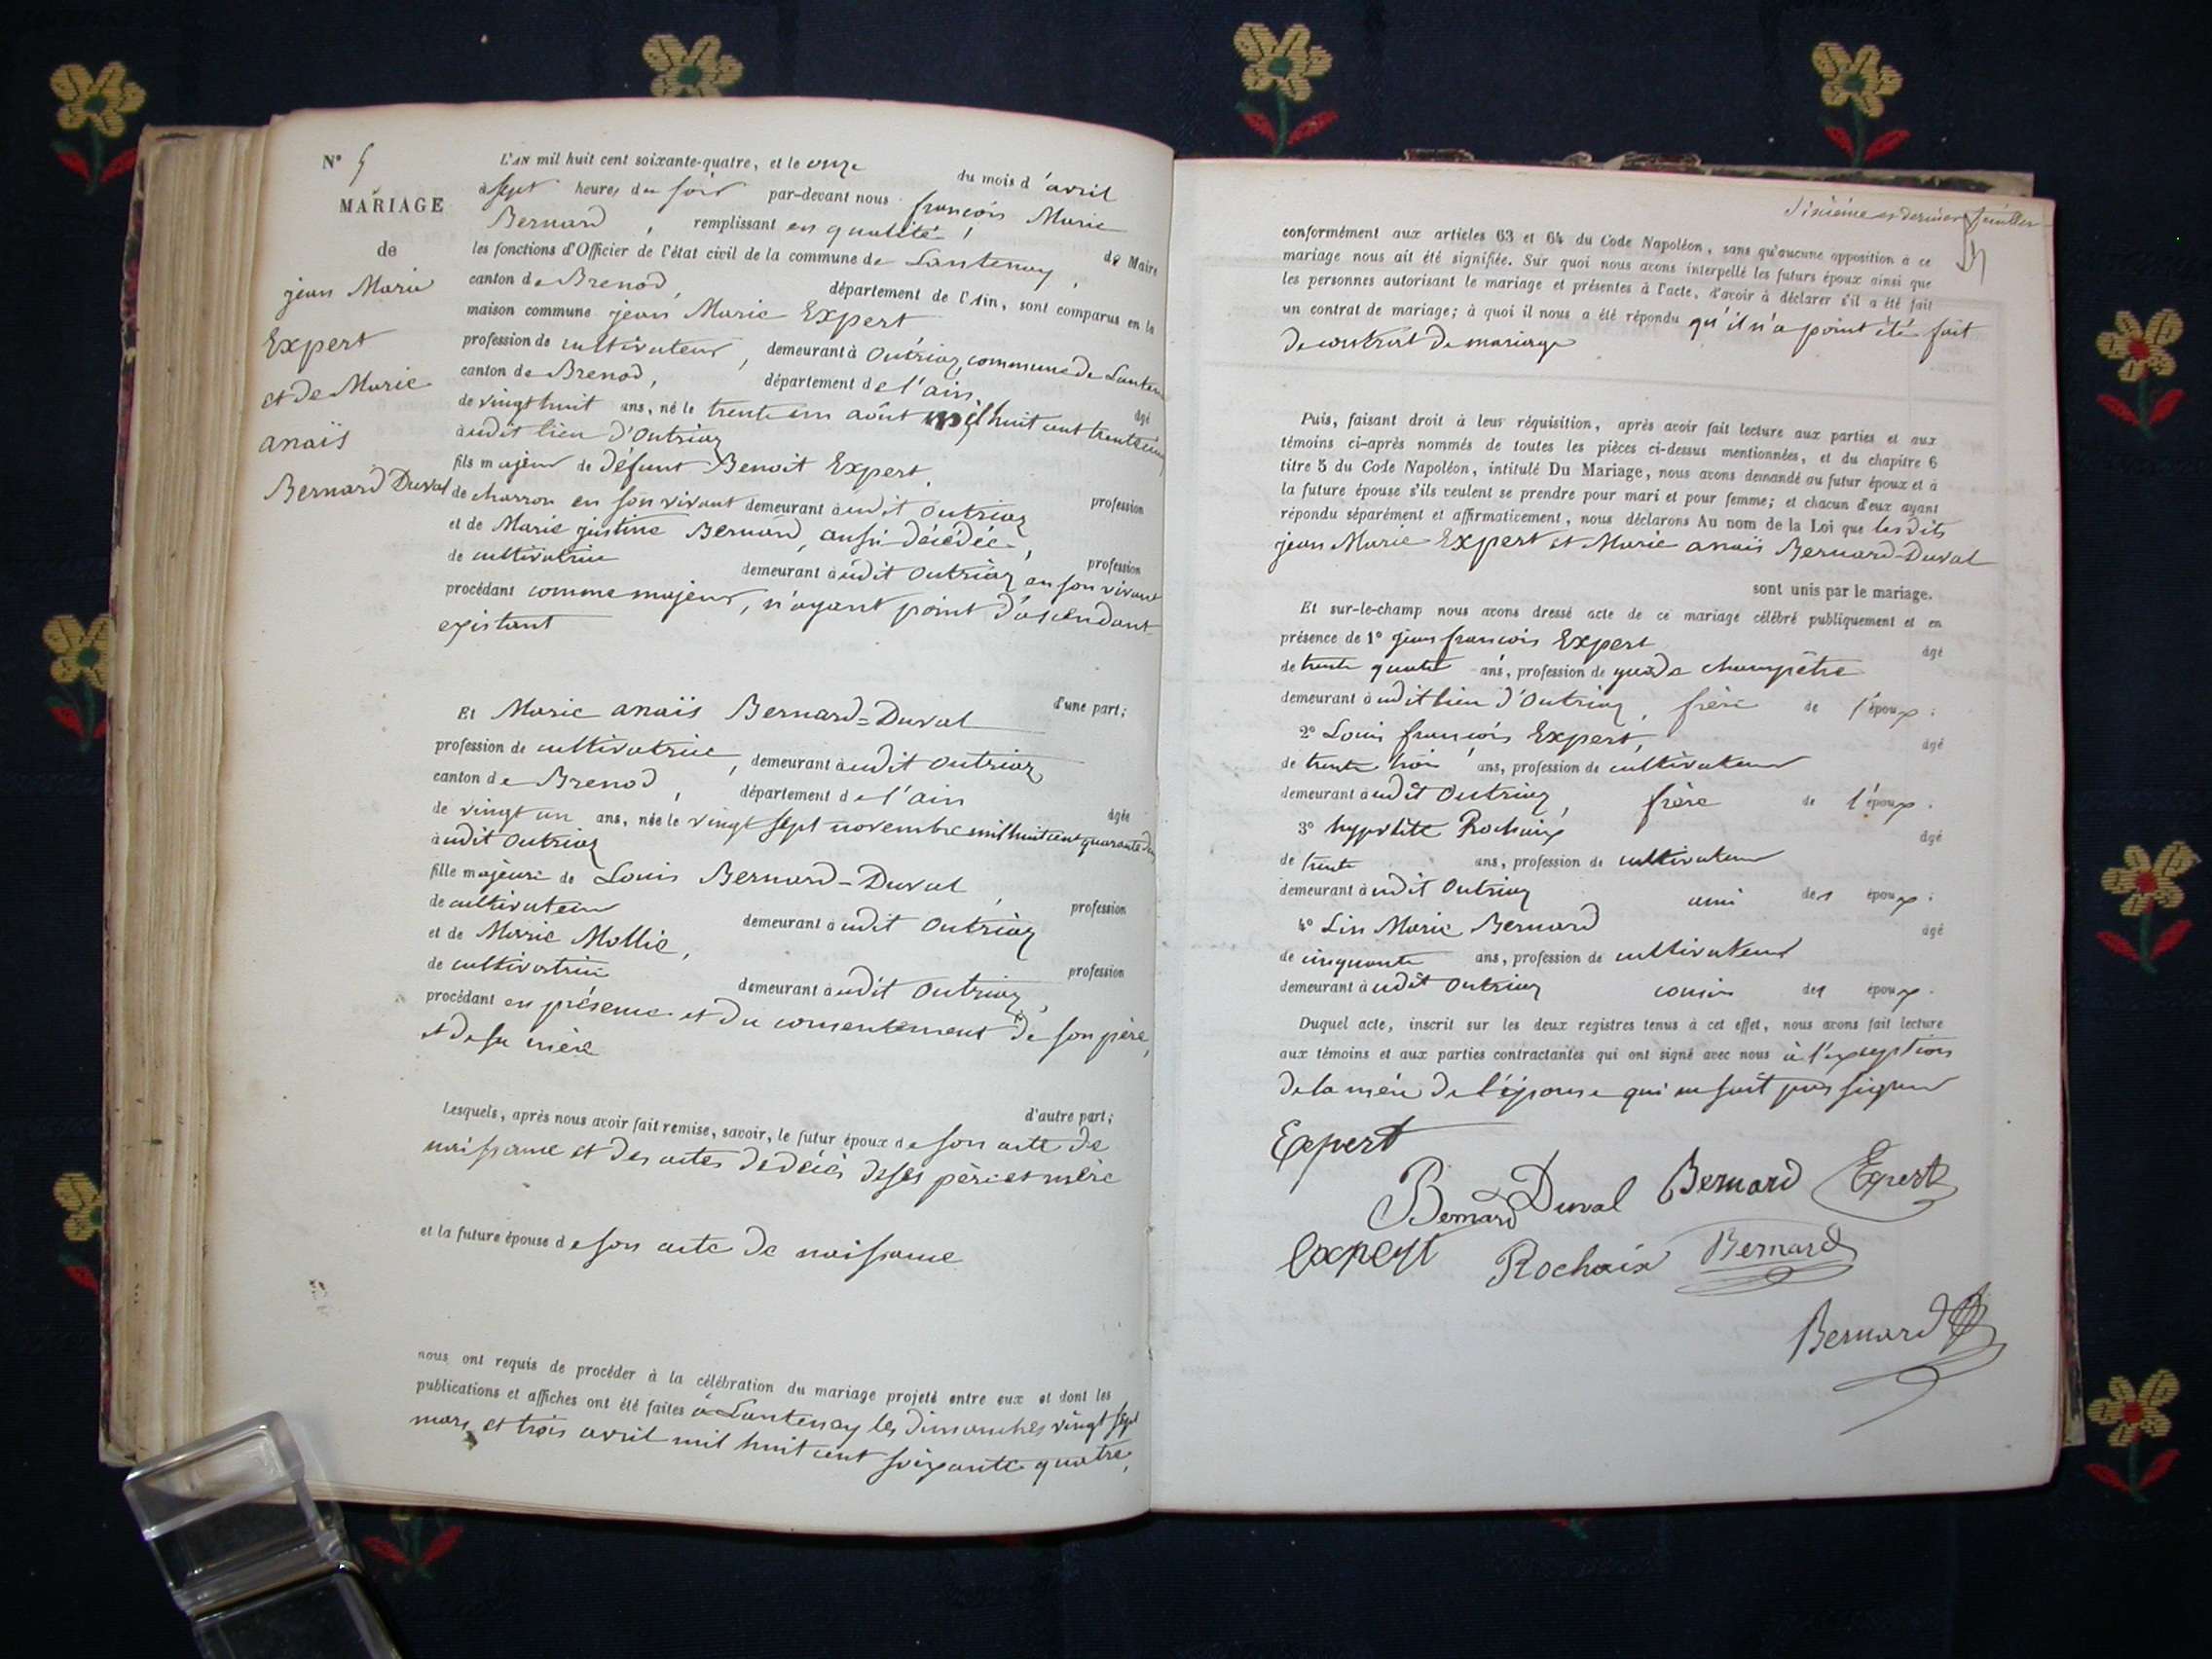 N° 5
MARIAGE
de
jean Marie
Expert
et de Marie
anaïs
Bernard Duval
L'AN mil huit cent soixante-quatre, et le onze du mois d'avril
à sept heures du soir par-devant nous françois Marie
Bernard, remplissant en qualité, de Maire
les fonctions d'Officier de l'état civil de la commune de Lantenay,
canton de Brenod, département de l'Ain, sont comparus en la
maison commune jean Marie Expert
profession de cultivateur, demeurant à Outriaz, commune de Lanten
canton de Brenod, département de l'ain, âgé
de vingt huit ans, né le trente un août mil huit cent trente cinq
à udit lieu d'Outriaz
fils majeur de défunt Benoit Expert, profession
de charron en son vivant demeurant à udit Outriaz
et de Marie justine Bernard, aussi décédée, profession
de cultivatrice demeurant à udit Outriaz en son vivant
procédant comme majeur, n'ayant point d'ascendant
existant
d'une part;
Et Marie anaïs Bernard=Duval
profession de cultivatrice, demeurant à udit Outriaz
canton de Brenod, département de l'ain âgée
de vingt un ans, née le vingt sept novembre mil huit cent quarante deux
à udit Outriaz
fille majeure de Louis Bernard=Duval, profession
de cultivateur demeurant à udit Outriaz
et de Marie Mollie, profession
de cultivatrice demeurant à udit Outriaz,
procédant en présence et du consentement de son père,
et de sa mère
d'autre part;
Lesquels, après nous avoir fait remise, savoir, le futur époux de son acte de
naissance et des actes de décès de ses père et mère
et la future épouse de son acte de naissance
nous ont requis de procéder à la célébration du mariage projeté entre eux et dont les
publications et affiches ont été faites à Lantenay les dimanches vingt sept
mars et trois avril mil huit cent soixante quatre,
Sixième et dernier feuillet
conformément aux articles 63 et 64 du Code Napoléon, sans qu'aucune opposition à ce
mariage nous ait été signifiée. Sur quoi nous avons interpellé les futurs époux ainsi que
les personnes autorisant le mariage et présentes à l'acte, d'avoir à déclarer s'il a été fait
un contrat de mariage; à quoi il nous a été répondu qu'il n'a point été fait
de contrat de mariage
Puis, faisant droit à leur réquisition, après avoir fait lecture aux parties et aux
témoins ci-après nommés de toutes les pièces ci-dessus mentionnées, et du chapitre 6
titre 5 du Code Napoléon, intitulé Du Mariage, nous avons demandé au futur époux et à
la future épouse s'ils veulent se prendre pour mari et pour femme; et chacun d'eux ayant
répondu séparément et affirmativement, nous déclarons Au nom de la Loi que lesdits
jean Marie Expert et Marie anaïs Bernard-Duval
sont unis par le mariage.
Et sur-le-champ nous avons dressé acte de ce mariage célébré publiquement et en
présence de 1° jean françois Expert âgé
de trente quatre ans, profession de garde champêtre
demeurant à udit lieu d'Outriaz, frère de l'époux;
2° Louis françois Expert, âgé
de trente trois ans, profession de cultivateur
demeurant à udit Outriaz, frère de l'époux.
3° hypolite Rochaix âgé
de trente ans, profession de cultivateur
demeurant à udit Outriaz ami des époux;
4° Lin Marie Bernard âgé
de cinquante ans, profession de cultivateur
demeurant à udit Outriaz cousin des époux.
Duquel acte, inscrit sur les deux registres tenus à cet effet, nous avons fait lecture
aux témoins et aux parties contractantes qui ont signé avec nous à l'exeption
de la mère de l'épouse qui ne sait pas signer
Expert
Bernard Duval Bernard Expert
Expert Rochaix Bernard
Bernard